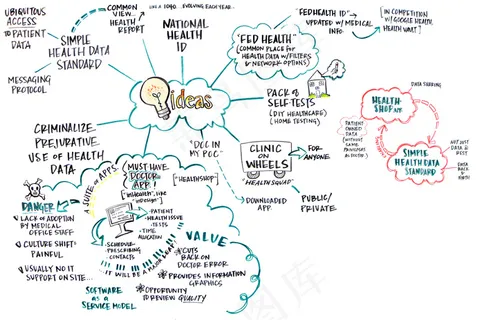 UBIQUITOUS
ACCESS
TO PATIENT
DATA
MESSAGING
PROTOCOL
SIMPLE
HEALTH DATA
STANDARD
COMMON
VIEW...
HEALTH
REPORT
LIKE A 1040... EVOLVING EACH YEAR...
NATIONAL
HEALTH
ID
"FED HEALTH"
(COMMON PLACE for
HEALTH DATA w/FILTERS
& NETWORK OPTIONS)
"FEDHEALTH ID"
UPDATED w/MEDICAL
INFO.
[IN COMPETITION
w/GOOGLE HEALTH,
HEALTH VAULT]
ideas
PACK of
SELF-TESTS
(DIY HEALTHCARE)
(HOME TESTING)
CRIMINALIZE
PREJURATIVE
USE of HEALTH
DATA
"DOC IN
MY POC"
CLINIC
ON
WHEELS
"HEALTHSQUAD"
FOR
ANYONE
PUBLIC/
PRIVATE
DOWNLOADED
APP.
DATA SHARING
HEALTH-
SHOP APP
PATIENT
OWNED
DATA
SIMPLE
HEALTH DATA
STANDARD
NOT JUST
DATA @
REST
DATA
BACK
SUITE of APPS
MUST HAVE
DOCTOR
APP!
["HEALTHSHOP"]
PATIENT
HEALTH ISSUE
TESTS
TIME
ALLOCATION
SCHEDULE
PRESCRIBING
CONTACTS
WILL BE A MAJOR
DANGER
LACK of ADOPTION
BY MEDICAL
OFFICE STAFF
CULTURE SHIFT
PAINFUL
USUALLY NO IT
SUPPORT ON SITE...
SOFTWARE
as a
SERVICE MODEL
VALUE
CUTS
BACK ON
DOCTOR ERROR
PROVIDES INFORMATION
GRAPHICS
OPPORTUNITY
to REVIEW QUALITY